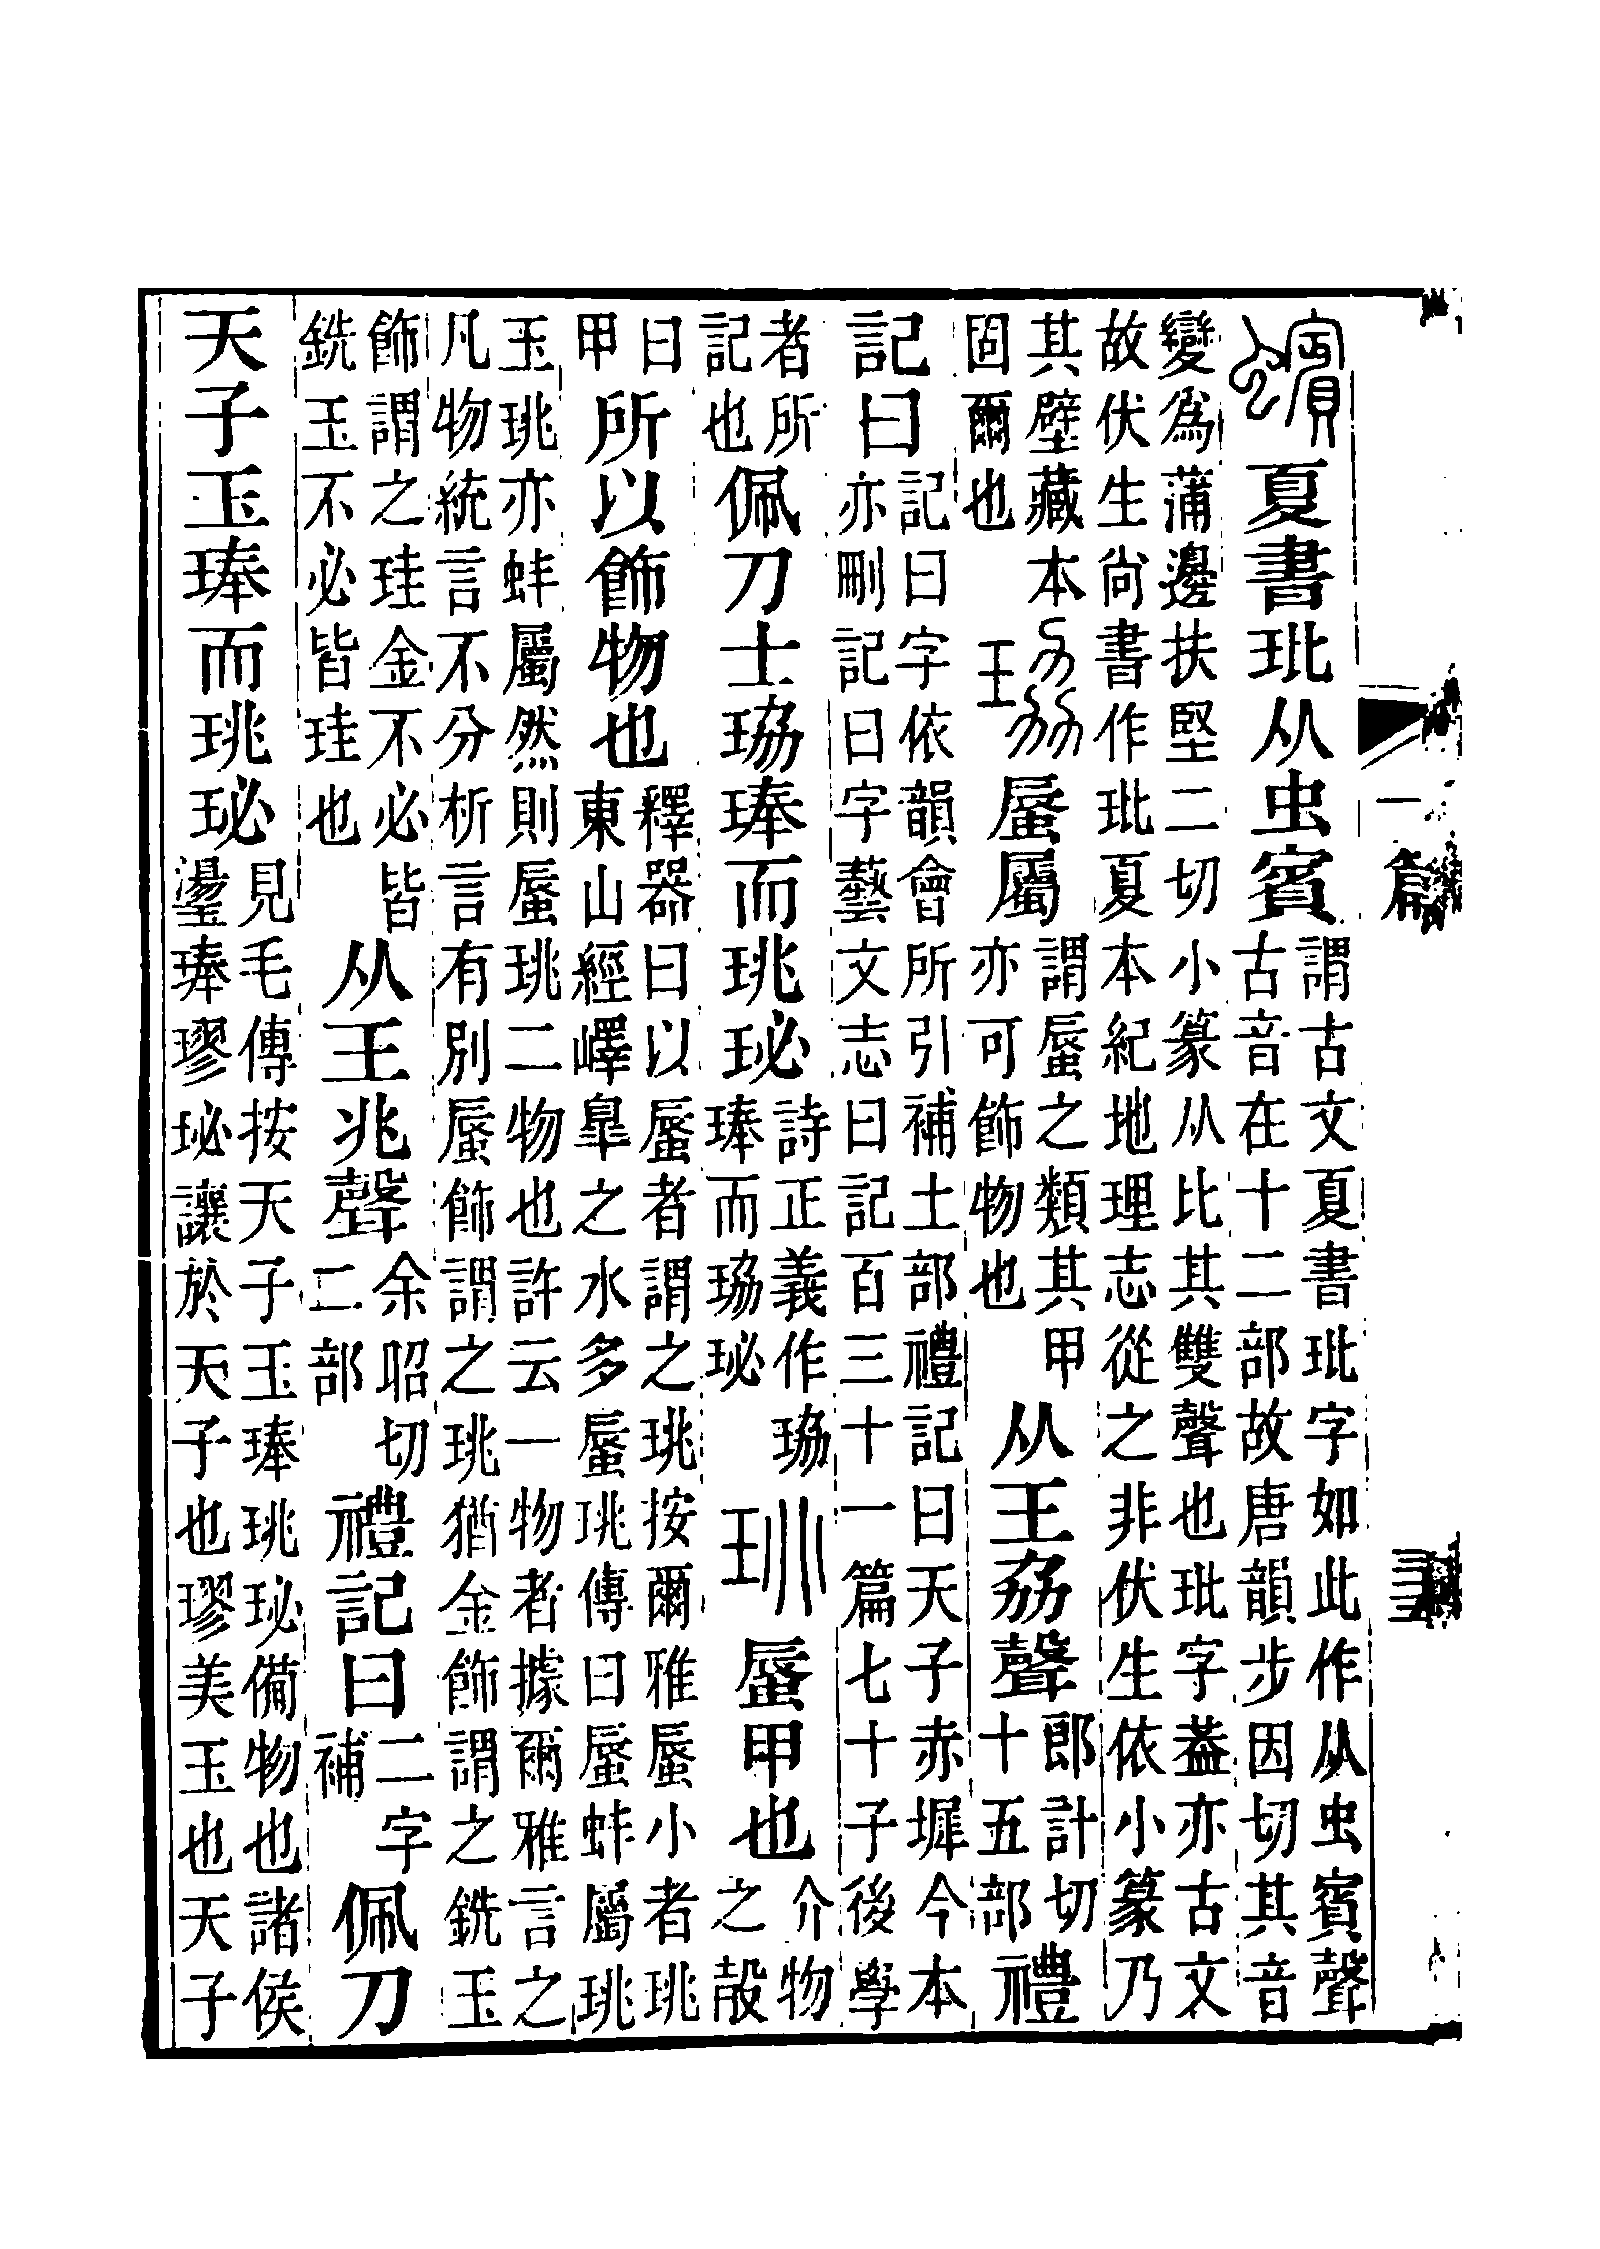 蠙夏書玭从虫賓謂古文夏書玭字如此作从虫賓聲古音在十二部故唐韻步因切其音
變爲蒲邊扶堅二切小篆从比其雙聲也玭字葢亦古文故伏生尙書作玭夏本紀地理志從之非伏生依小篆乃
其壁藏本固爾也珕蜃屬謂蜃之類其甲亦可飾物也从王劦聲郎計切十五部禮
記曰記曰字依韻會所引補土部禮記曰天子赤墀今本亦刪記曰字藝文志曰記百三十一篇七十子後學
者所記也佩刀士珕琫而珧珌詩正義作珕琫而珕珌珧蜃甲也介物之㱿
曰甲所以飾物也釋器曰以蜃者謂之珧按爾雅蜃小者珧東山經嶧皐之水多蜃珧傳曰蜃蚌屬珧
玉珧亦蚌屬然則蜃珧二物也許云一物者據爾雅言之凡物統言不分析言有別蜃飾謂之珧猶金飾謂之銑玉
飾謂之珪金不必皆銑玉不必皆珪也从王兆聲余昭切二部禮記曰二字補佩刀
天子玉琫而珧珌見毛傳按天子玉琫珧珌備物也諸侯璗琫璆珌讓於天子也璆美玉也天子
一篇